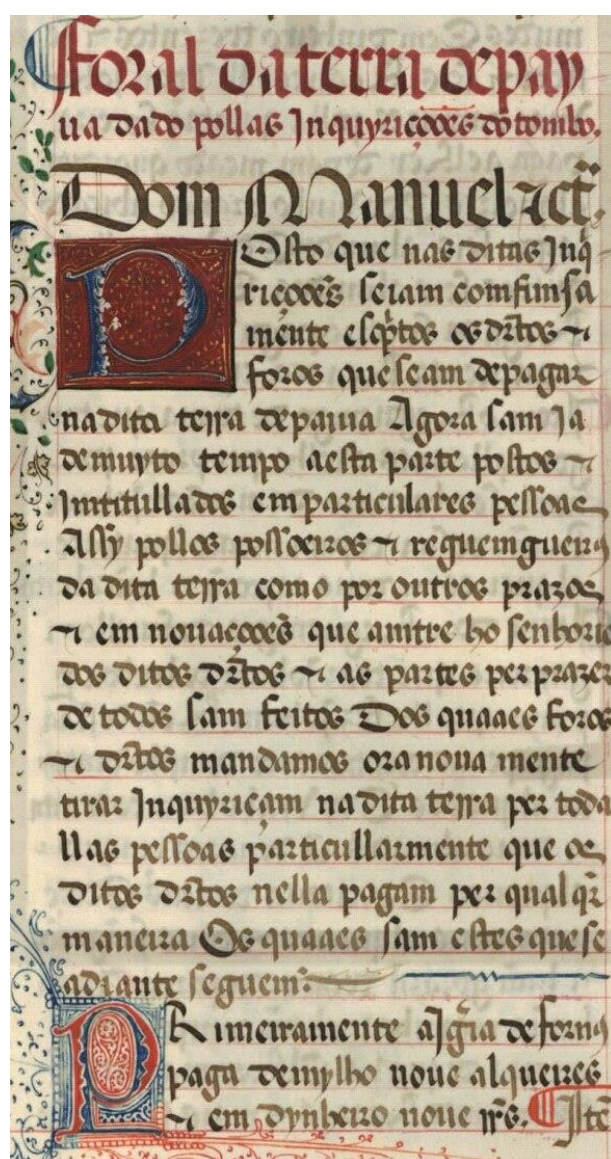 Foral da terra de pay
ua dado pollas Inquyriçoões do tombo.
Dom Manuel &ct̃.
POsto que nas ditas Inq̃
riçoões seiam comfunsa
mente esc̃ptos os dr̃tos ⁊
foros que se am de pagar
na dita terra de paiua Agora sam Ja
de muyto tempo a esta parte postos ⁊
Imtitullados em particulares pessoas
Assy pollos possoeiros ⁊ regueingueiros
da dita terra como por outros prazos
⁊ em nouaçoões que amtre ho senhorio
dos ditos dr̃tos ⁊ as partes per prazer
de todos sam feitos Dos quaaes foros
⁊ dr̃tos mandamos ora noua mente
tirar Inquyriçam na dita terra per toda
llas pessoas particullarmente que os
ditos dr̃tos nella pagam per qualqr̃
maneira Os quaaes sam estes que se
adiante seguem.
PRimeiramente a Igr̃ia de fornos
paga de mylho noue alqueires
⁊ em dynheiro noue rr̃s. ¶ Itẽ